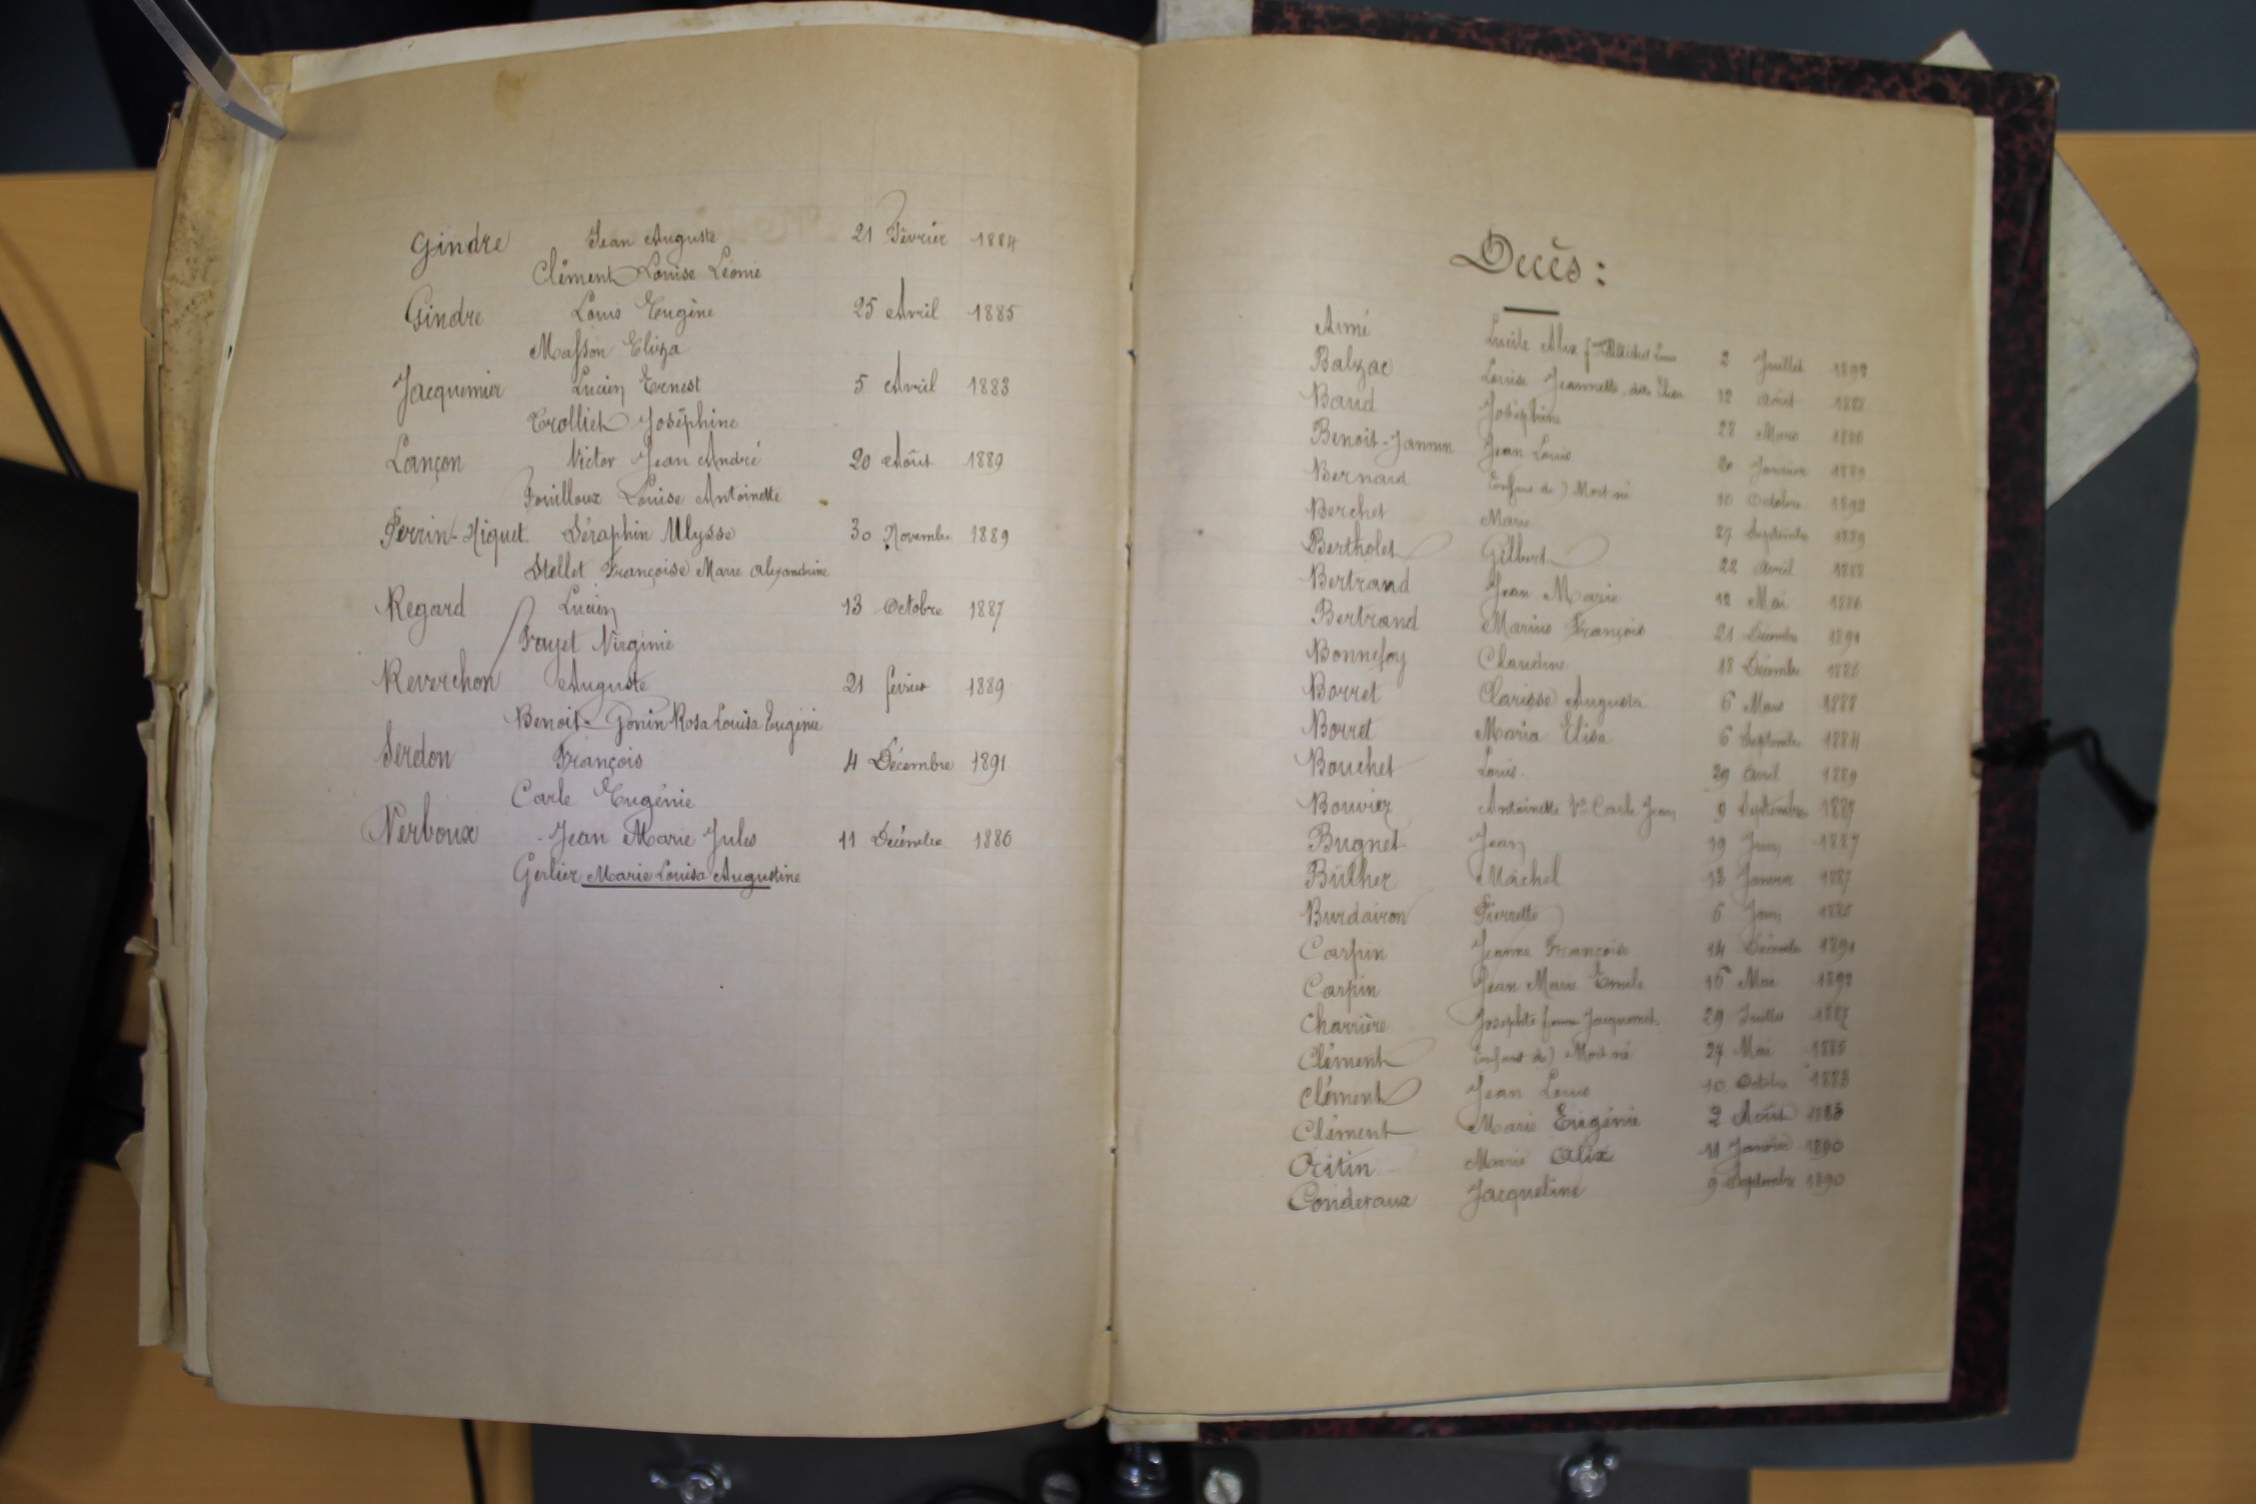 Gindre Jean Auguste 21 Février 1884
Clément Louise Léonie
Gindre Louis Eugène 25 Avril 1885
Masson Eliza
Jacquemier Lucien Ernest 5 Avril 1883
Trolliet Joséphine
Lançon Victor Jean André 20 Août 1889
Fouilloux Louise Antoinette
Perrin-Niquet Séraphin Ulysse 30 Novembre 1889
Stellet Françoise Marie Alexandrine
Regard Lucien 13 Octobre 1887
Fayet Virginie
Reverchon Auguste 21 février 1889
Benoit-Gonin Rosa Louisa Eugénie
Serdon François 4 Décembre 1891
Carle Eugénie
Verboux Jean Marie Jules 11 Décembre 1886
Gerlier Marie Louisa Augustine
Décès:
Aimé Lucile Alix 2 Juillet
Balzac Louise Jeannette 12 août 1888
Baud Joséphine 28 Mars 1886
Benoit-Jannin Jean Louis 20 Janvier 1889
Bernard Enfant de) Mort né 10 Octobre 1892
Berchet Marie 27 Septembre 1889
Bertholet Gilbert 22 Avril 1888
Bertrand Jean Marie 12 Mai 1886
Bertrand Marius François 21 Décembre
Bonnefoy Claudine 18 Décembre 1886
Borret Clarisse Augusta 6 Mars 1888
Borret Maria Elisa 6 Septembre 1884
Bouchet Louis 29 Avril 1889
Bouvier Antoinette Ve Carle Jean 9 Septembre 1887
Bugnet Jean 19 Juin 1887
Büther Michel 13 Janvier 1887
Burdairon Pierrette 6 Juin
Carpin Jeanne Françoise 14 Décembre 1891
Carpin Jean Marie Emile 16 Mai 1892
Charrière Josephte femme Jacquemet 29 Juillet 1887
Clément Enfant de) Mort né 27 Mai 1885
Clément Jean Louis 10 Octobre 1883
Clément Marie Eugénie 2 Août 1883
Critin Marie Alix 11 Janvier 1890
Conderaux Jacqueline 9 Septembre 1890